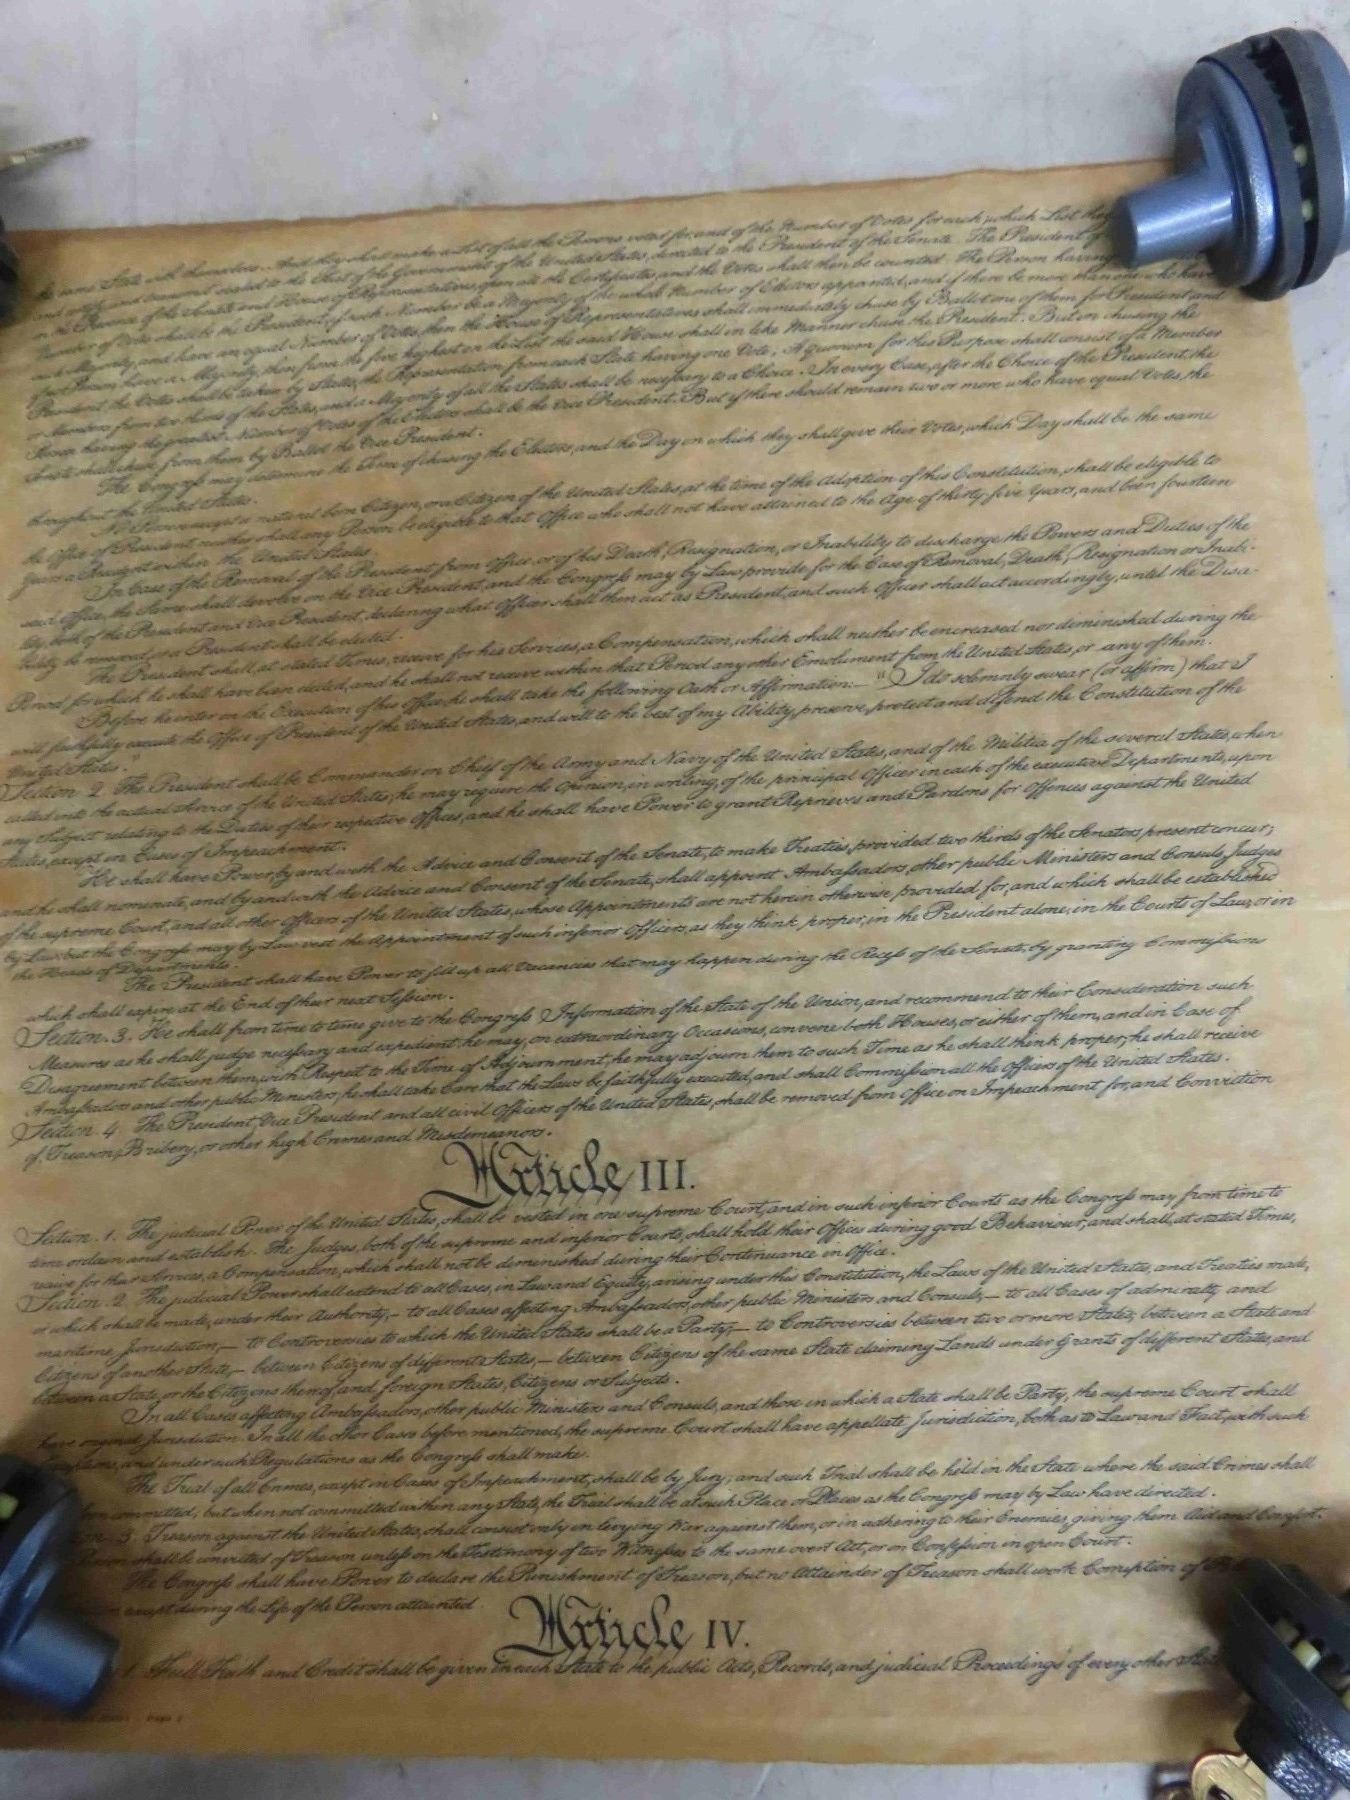 the same State with themselves. And they shall make a List of all the Persons voted for, and of the Number of Votes for each; which List they
and certify, and transmit sealed to the Seat of the Government of the United States, directed to the President of the Senate. The President of
in the Presence of the Senate and House of Representatives, open all the Certificates, and the Votes shall then be counted. The Person having
Number of Votes shall be the President, if such Number be a Majority of the whole Number of Electors appointed; and if there be more than one who have
such Majority, and have an equal Number of Votes, then the House of Representatives shall immediately chuse by Ballot one of them for President; and
if no Person have a Majority, then from the five highest on the List the said House shall in like Manner chuse the President. But in chusing the
President, the Votes shall be taken by States, the Representation from each State having one Vote; A quorum for this Purpose shall consist of a Member
or Members from two thirds of the States, and a Majority of all the States shall be necessary to a Choice. In every Case, after the Choice of the President, the
Person having the greatest Number of Votes of the Electors shall be the Vice President. But if there should remain two or more who have equal Votes, the
Senate shall chuse from them by Ballot the Vice President.
The Congress may determine the Time of chusing the Electors, and the Day on which they shall give their Votes; which Day shall be the same
throughout the United States.
No Person except a natural born Citizen, or a Citizen of the United States, at the time of the Adoption of this Constitution, shall be eligible to
the Office of President; neither shall any Person be eligible to that Office who shall not have attained to the Age of thirty five Years, and been fourteen
Years a Resident within the United States.
In Case of the Removal of the President from Office, or of his Death, Resignation, or Inability to discharge the Powers and Duties of the
said Office, the Same shall devolve on the Vice President, and the Congress may by Law provide for the Case of Removal, Death, Resignation or Inabi-
lity, both of the President and Vice President, declaring what Officer shall then act as President, and such Officer shall act accordingly, until the Disa-
bility be removed, or a President shall be elected.
The President shall, at stated Times, receive for his Services, a Compensation, which shall neither be encreased nor diminished during the
Period for which he shall have been elected, and he shall not receive within that Period any other Emolument from the United States, or any of them.
Before he enter on the Execution of his Office, he shall take the following Oath or Affirmation:— "I do solemnly swear (or affirm) that I
will faithfully execute the Office of President of the United States, and will to the best of my Ability, preserve, protect and defend the Constitution of the
United States."
Section 2. The President shall be Commander in Chief of the Army and Navy of the United States, and of the Militia of the several States, when
called into the actual Service of the United States; he may require the Opinion, in writing, of the principal Officer in each of the executive Departments, upon
any Subject relating to the Duties of their respective Offices, and he shall have Power to grant Reprieves and Pardons for Offences against the United
States, except in Cases of Impeachment.
He shall have Power, by and with the Advice and Consent of the Senate, to make Treaties, provided two thirds of the Senators present concur;
and he shall nominate, and by and with the Advice and Consent of the Senate, shall appoint Ambassadors, other public Ministers and Consuls, Judges
of the supreme Court, and all other Officers of the United States, whose Appointments are not herein otherwise provided for, and which shall be established
by Law: but the Congress may by Law vest the Appointment of such inferior Officers, as they think proper, in the President alone, in the Courts of Law, or in
the Heads of Departments.
The President shall have Power to fill up all Vacancies that may happen during the Recess of the Senate, by granting Commissions
which shall expire at the End of their next Session.
Section. 3. He shall from time to time give to the Congress Information of the State of the Union, and recommend to their Consideration such
Measures as he shall judge necessary and expedient; he may, on extraordinary Occasions, convene both Houses, or either of them, and in Case of
Disagreement between them, with Respect to the Time of Adjournment, he may adjourn them to such Time as he shall think proper; he shall receive
Ambassadors and other public Ministers; he shall take Care that the Laws be faithfully executed, and shall Commission all the Officers of the United States.
Section 4. The President, Vice President and all civil Officers of the United States, shall be removed from Office on Impeachment for, and Conviction
of, Treason, Bribery, or other high Crimes and Misdemeanors.
Article III.
Section. 1. The judicial Power of the United States, shall be vested in one supreme Court, and in such inferior Courts as the Congress may from time to
time ordain and establish. The Judges, both of the supreme and inferior Courts, shall hold their Offices during good Behaviour, and shall, at stated Times,
receive for their Services, a Compensation, which shall not be diminished during their Continuance in Office.
Section. 2. The judicial Power shall extend to all Cases, in Law and Equity, arising under this Constitution, the Laws of the United States, and Treaties made,
or which shall be made, under their Authority;— to all Cases affecting Ambassadors, other public Ministers and Consuls;— to all Cases of admiralty and
maritime Jurisdiction;— to Controversies to which the United States shall be a Party;— to Controversies between two or more States; between a State and
Citizens of another State;— between Citizens of different States,— between Citizens of the same State claiming Lands under Grants of different States, and
between a State, or the Citizens thereof, and foreign States, Citizens or Subjects.
In all Cases affecting Ambassadors, other public Ministers and Consuls, and those in which a State shall be Party, the supreme Court shall
have original Jurisdiction. In all the other Cases before mentioned, the supreme Court shall have appellate Jurisdiction, both as to Law and Fact, with such
Exceptions, and under such Regulations as the Congress shall make.
The Trial of all Crimes, except in Cases of Impeachment, shall be by Jury; and such Trial shall be held in the State where the said Crimes shall
been committed; but when not committed within any State, the Trial shall be at such Place or Places as the Congress may by Law have directed.
3. Treason against the United States, shall consist only in levying War against them, or in adhering to their Enemies, giving them Aid and Comfort.
Person shall be convicted of Treason unless on the Testimony of two Witnesses to the same overt Act, or on Confession in open Court.
The Congress shall have Power to declare the Punishment of Treason, but no Attainder of Treason shall work Corruption of
except during the Life of the Person attainted.
Article IV.
1. Full Faith and Credit shall be given in each State to the public Acts, Records, and judicial Proceedings of every other